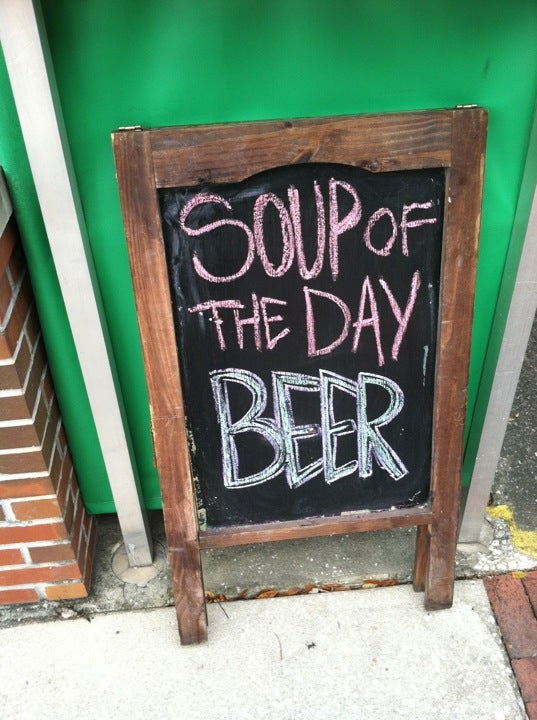 SOUP OF
THE DAY
BEER